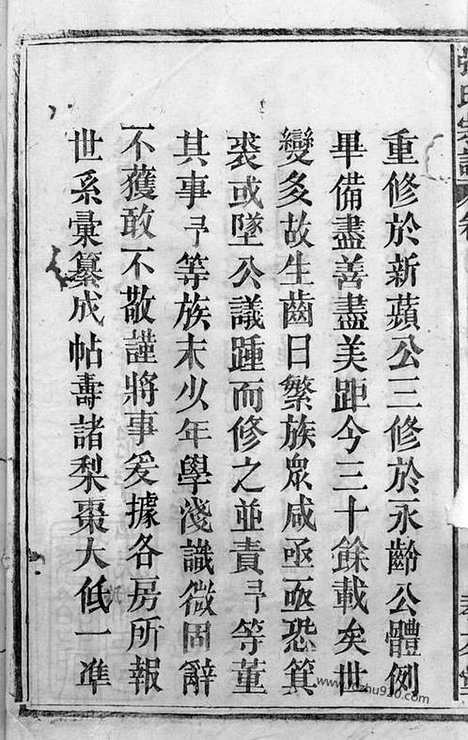 重修於新蘋公三修於永齡公體例
畢備盡善盡美距今三十餘載矣世
變多故生齒日繁族眾咸亟亟恐箕
裘或墜公議踵而修之並責予等董
其事予等族末少年學淺識微固辭
不獲敢不敬謹將事爰據各房所報
世系彙纂成帖壽諸梨棗大低一準